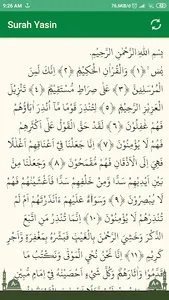 9:26 AM 78.1KB/s
Surah Yasin
بِسْمِ اللّٰهِ الرَّحْمٰنِ الرَّحِيْمِ
يٰسٓ ﴿١﴾ وَالْقُرْاٰنِ الْحَكِيْمِ ﴿٢﴾ اِنَّكَ لَمِنَ
الْمُرْسَلِيْنَ ﴿٣﴾ عَلٰى صِرَاطٍ مُّسْتَقِيْمٍ ﴿٤﴾ تَنْزِيْلَ
الْعَزِيْزِ الرَّحِيْمِ ﴿٥﴾ لِتُنْذِرَ قَوْمًا مَّآ اُنْذِرَ اٰبَآؤُهُمْ
فَهُمْ غٰفِلُوْنَ ﴿٦﴾ لَقَدْ حَقَّ الْقَوْلُ عَلٰٓى اَكْثَرِهِمْ
فَهُمْ لَا يُؤْمِنُوْنَ ﴿٧﴾ اِنَّا جَعَلْنَا فِيْٓ اَعْنَاقِهِمْ اَغْلٰلًا
فَهِيَ اِلَى الْاَذْقَانِ فَهُمْ مُّقْمَحُوْنَ ﴿٨﴾ وَجَعَلْنَا مِنْۢ
بَيْنِ اَيْدِيْهِمْ سَدًّا وَّمِنْ خَلْفِهِمْ سَدًّا فَاَغْشَيْنٰهُمْ فَهُمْ
لَا يُبْصِرُوْنَ ﴿٩﴾ وَسَوَآءٌ عَلَيْهِمْ ءَاَنْذَرْتَهُمْ اَمْ لَمْ
تُنْذِرْهُمْ لَا يُؤْمِنُوْنَ ﴿١٠﴾ اِنَّمَا تُنْذِرُ مَنِ اتَّبَعَ
الذِّكْرَ وَخَشِيَ الرَّحْمٰنَ بِالْغَيْبِ فَبَشِّرْهُ بِمَغْفِرَةٍ وَّاَجْرٍ كَرِيْمٍ
﴿١١﴾ اِنَّا نَحْنُ نُحْيِ الْمَوْتٰى وَنَكْتُبُ مَا قَدَّمُوْا
وَاٰثَارَهُمْ وَكُلَّ شَيْءٍ اَحْصَيْنٰهُ فِيْٓ اِمَامٍ مُّبِيْنٍ